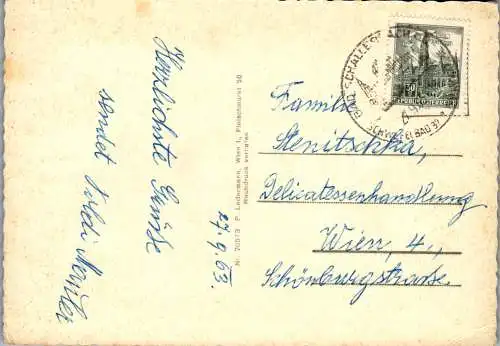 Herzlichste Grüße
sendet Poldi
27.9.63.
Nr. 70513 P. Ledermann, Wien I., Fleischmarkt 20
Nachdruck verboten
BAD SCHALLERBACH
SCHWEFELBAD
REPUBLIK ÖSTERREICH
Familie
Stenitschka,
Delicatessenhandlung
Wien, 4.,
Schönburgstraße.